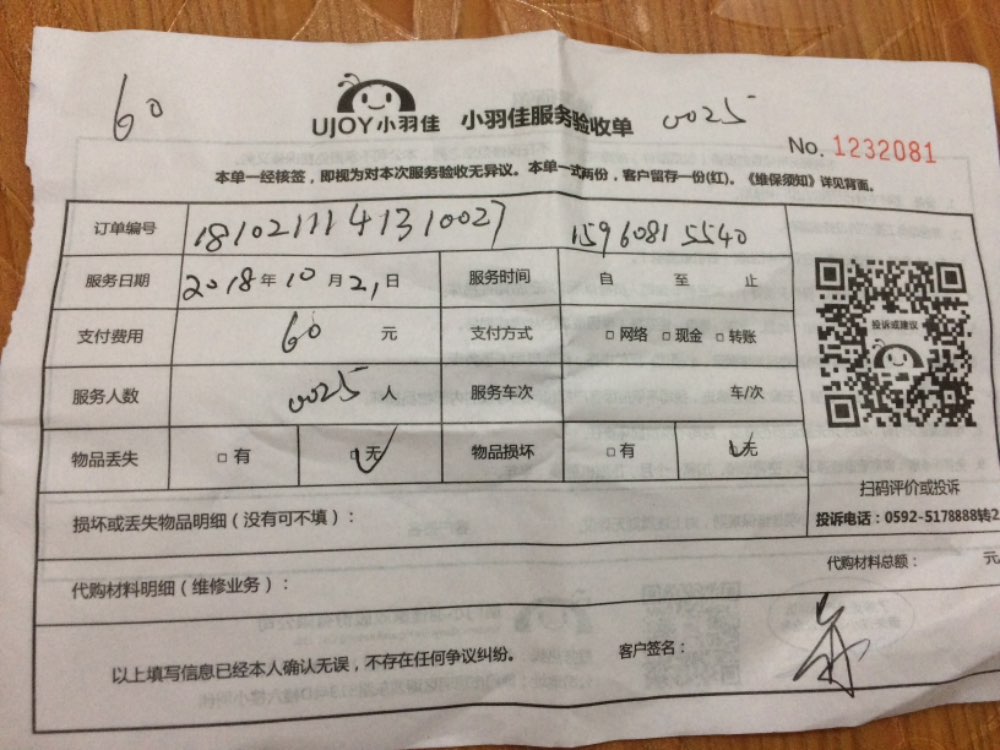 60
UJOY小羽佳 小羽佳服务验收单 0025
No. 1232081
本单一经核签，即视为对本次服务验收无异议。本单一式两份，客户留存一份(红)。《维保须知》详见背面。
订单编号 1810211141310027 15960815540
服务日期 2018年10月21日 服务时间 自 至 止
支付费用 60 元 支付方式 □网络 □现金 □转账
投诉或建议
服务人数 0025 人 服务车次 车/次
物品丢失 □有 □无 物品损坏 □有 □无
扫码评价或投诉
损坏或丢失物品明细（没有可不填）：
投诉电话：0592-5178888转2
代购材料明细（维修业务）： 代购材料总额： 元
以上填写信息已经本人确认无误，不存在任何争议纠纷。 客户签名：